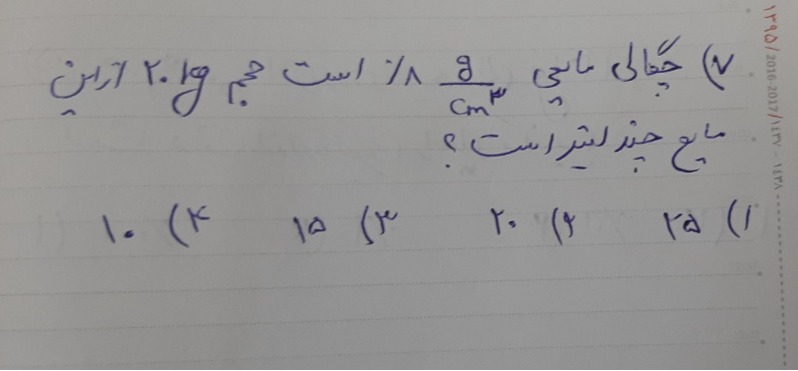 ۷) چگالی مایعی ۰/۸ g/cm³ است حجم ۲۰ kg از این
مایع چند لیتر است؟
۱) ۲۵ ۲) ۲۰ ۳) ۱۵ ۴) ۱۰
۱۳۹۵/2016-2017/١٤٣٧-١٤٣٨